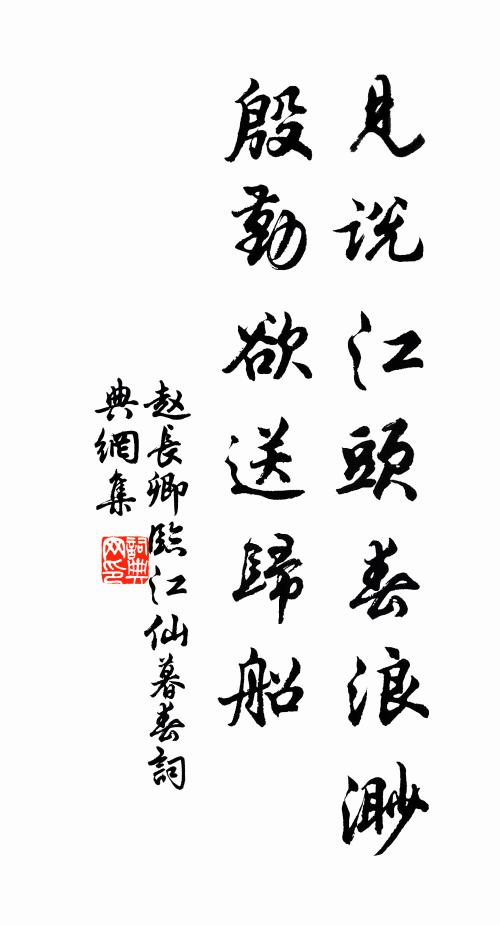 見説江頭春浪渺
殷勤欲送歸船
赵長卿臨江仙暮春詞
典網集
詞典
网印